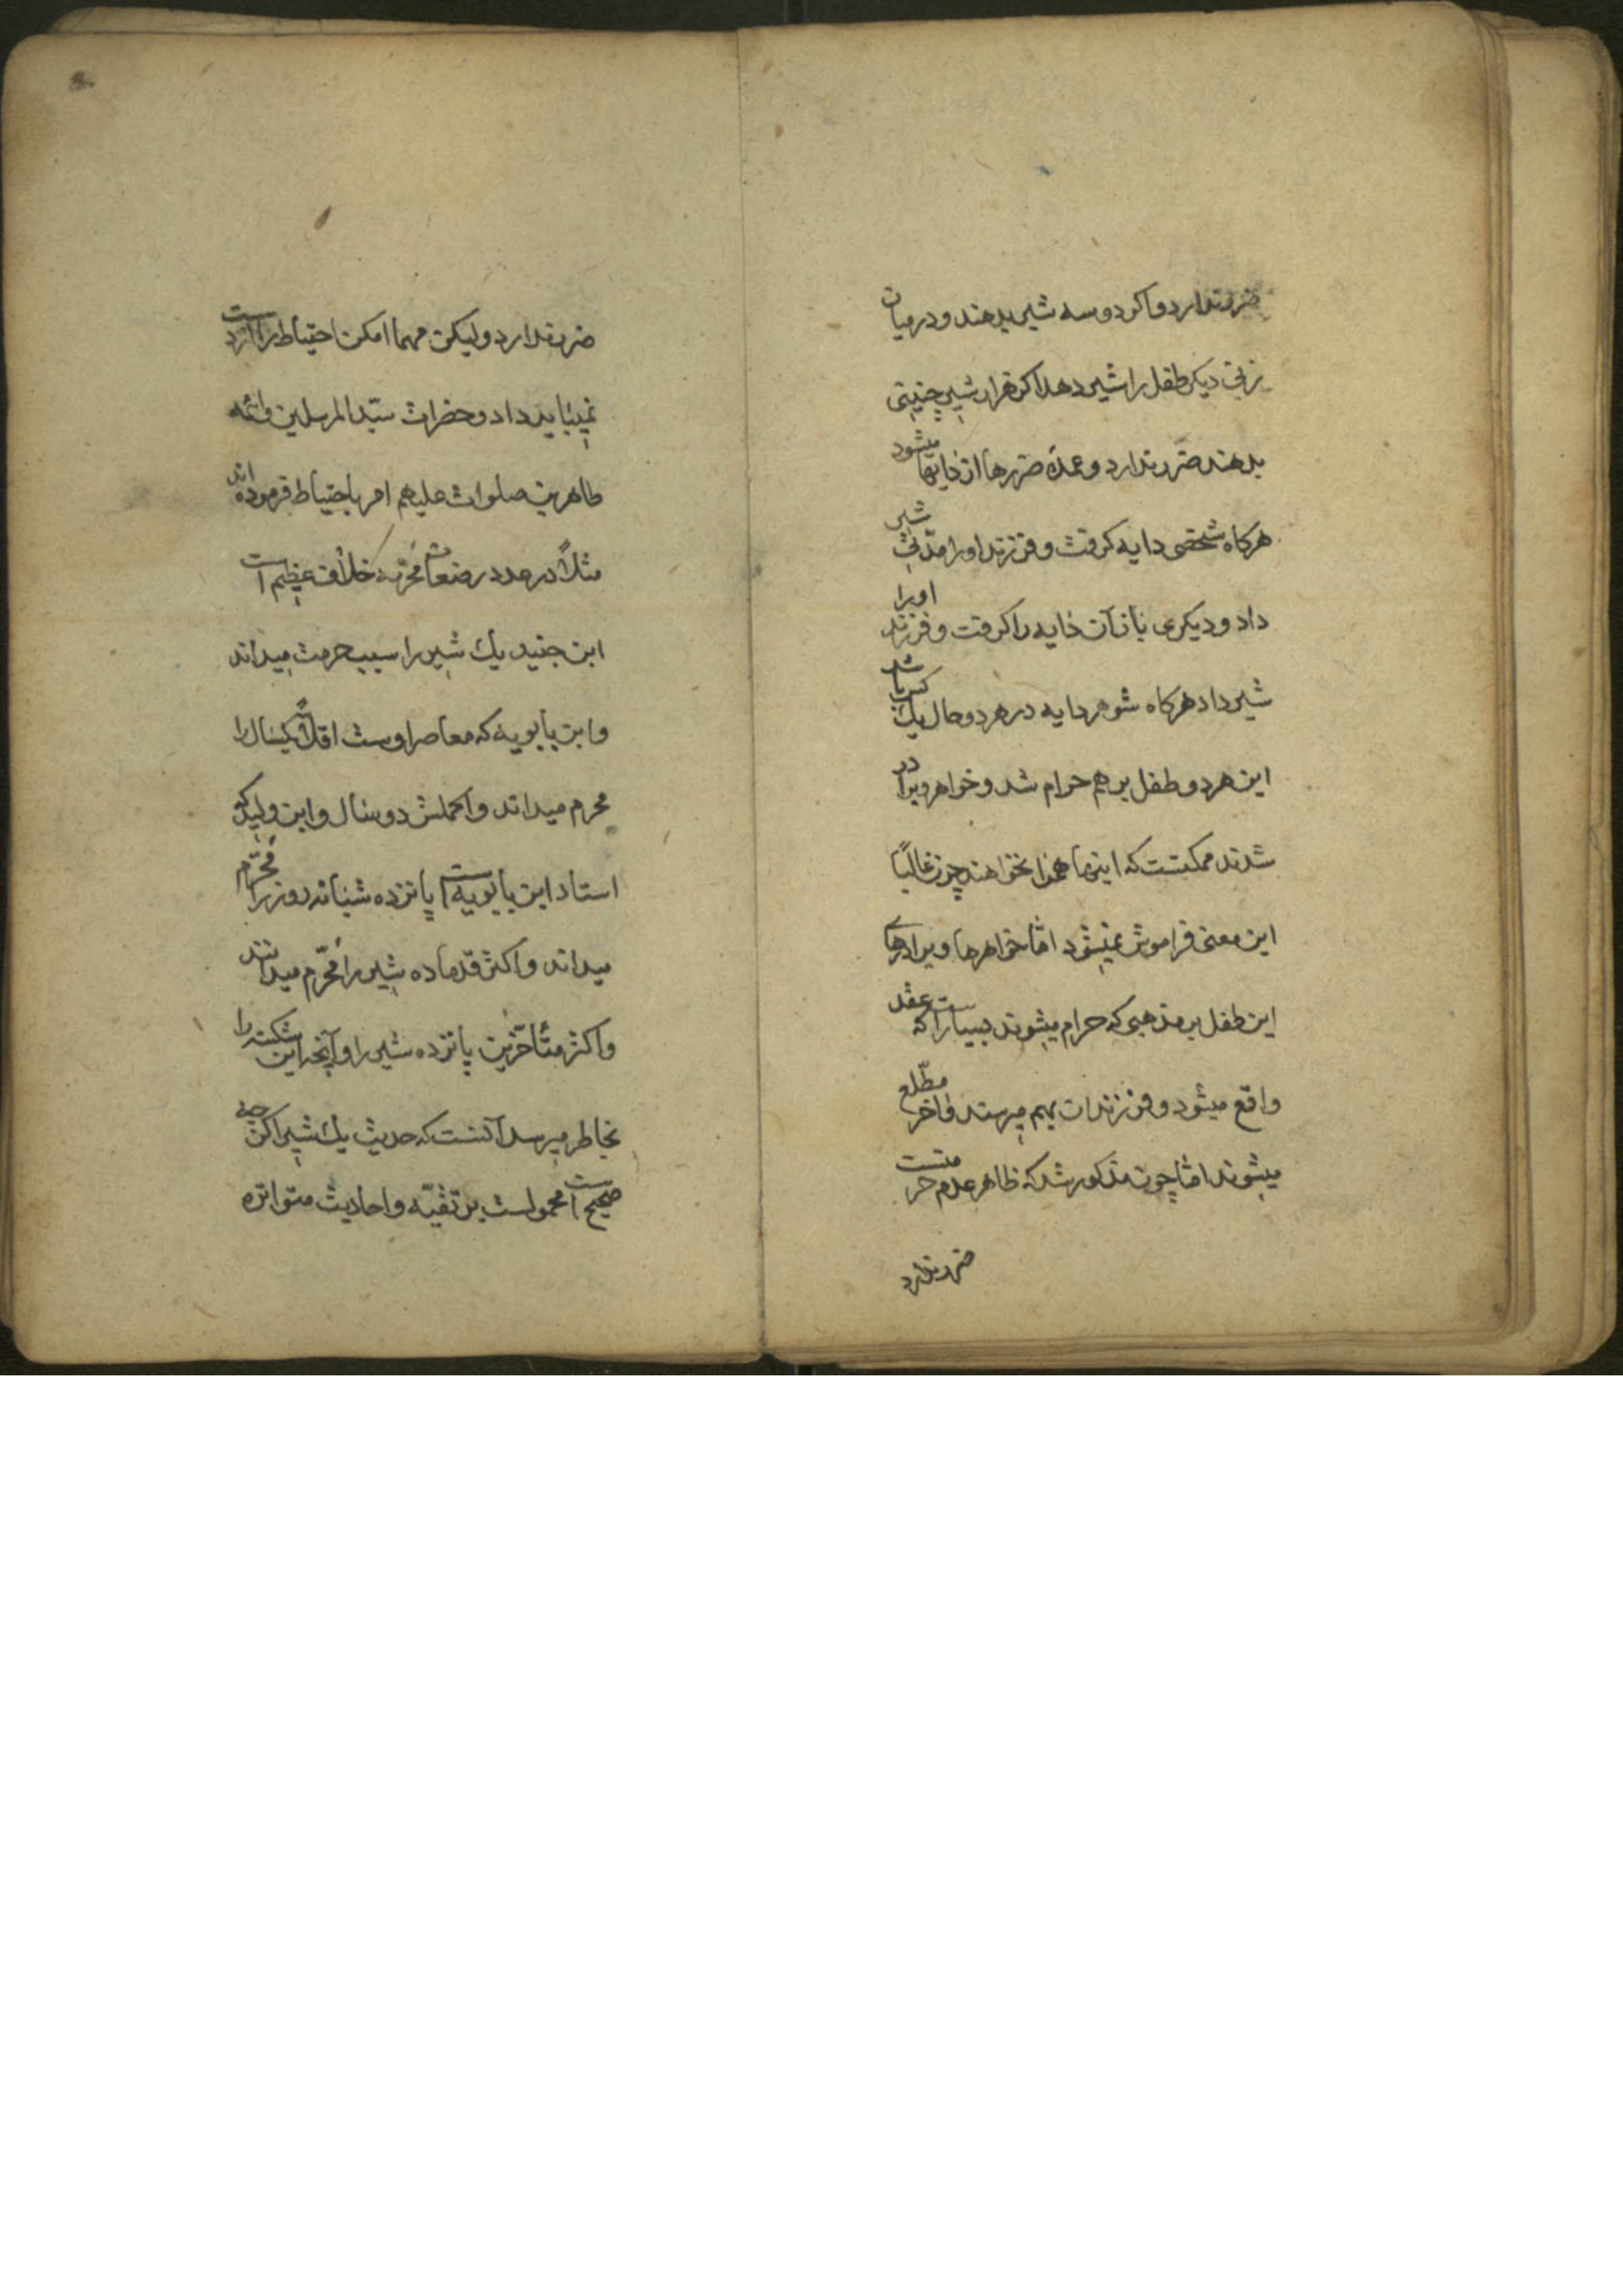 ضرر ندارد و اکر دو سه شیر بدهند و در میان
زنی دیکر طفل را شیر دهد اکر هزار شیر چنینی
بدهند ضرر ندارد و عمدۀ ضررها از دایها میشود
هرکاه شخصی دایه کرفت و فرزند او را مدّتی شیر
داد و دیکری باز آن دایه را کرفت و فرزند او را
شیر داد هرکاه شوهر دایه در هر دو حال یک کس باشد
این هر دو طفل بر هم حرام شد و خواهر و برادر
شدند ممکنست که اینها همرا نخواهند چون غالبًا
این معنی فراموش نمیشود امّا خواهرها و برادرهای
این طفل بر مذهبی که حرام میشوند بسیار است که عقد
واقع میشود و فرزندان بهم میرسند و اخر مطّلع
میشوند امّا چون مذکور شد که ظاهر عدم حرمتست
ضرر ندارد
ضرر ندارد و لیکن مهما امکن احتیاط را از دست
نمیباید داد و حضرات سیّد المرسلین و ائمه
طاهرین صلوات علیهم امر باحتیاط فرموده اند
مثلاً در عدد رضعات محرّمه خلاف عظیم است
ابن جنید یک شیر را سبب حرمت میداند
و ابن بابویه که معاصر اوست اقلاً یکسال را
محرم میداند و اکملش دو سال و ابن ولید که
استاد ابن بابویه است پانزده شبانه روز را محرّم
میداند و اکثر قدما ده شیر را محرّم میدانند
و اکثر متأخّرین پانزده شیر را و آنچه این شکسته را
بخاطر میرسد آنست که حدیث یک شیر اکرچه
صحیح است محمولست بر تقیّه و احادیث متواتره